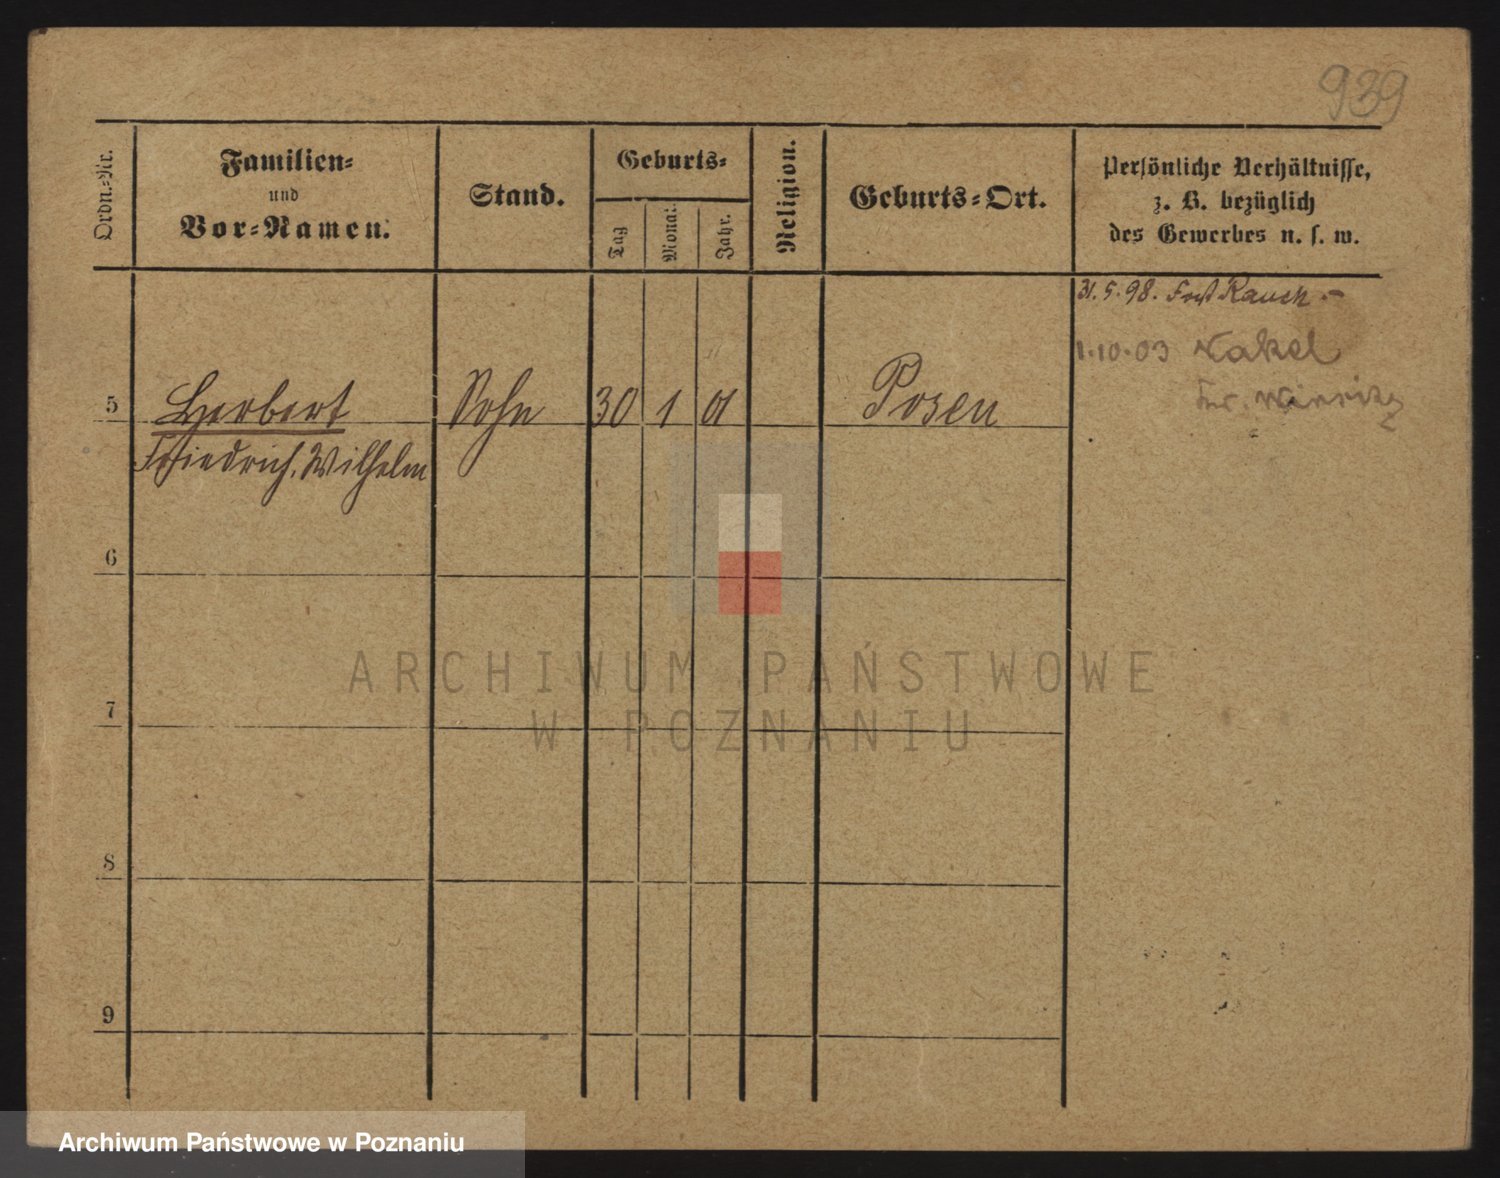 939
Ordn.-Nr.
Familien-
und
Vor-Namen.
Stand.
Geburts-
Tag
Monat
Jahr.
Religion.
Geburts-Ort.
Persönliche Verhältnisse,
z. B. bezüglich
des Gewerbes u. s. w.
31. 5. 98. Fort Rauch.-
1.10.03 Nakel
Kr. Wirsitz
5 Herbert Sohn 30 1 01 Posen
Friedrich, Wilhelm
6
ARCHIWUM PAŃSTWOWE
7
W POZNANIU
8
9
Archiwum Państwowe w Poznaniu